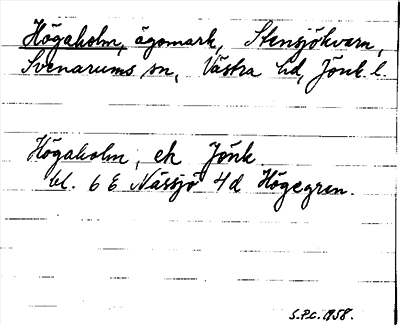 Högaholm, ägomark, Stensjökvarn,
Svenarums sn, Västra hd, Jönk. l.
Högaholm, ek Jönk
bl. 6 E Nässjö 4d Högegren.
S.P.C. 1958.